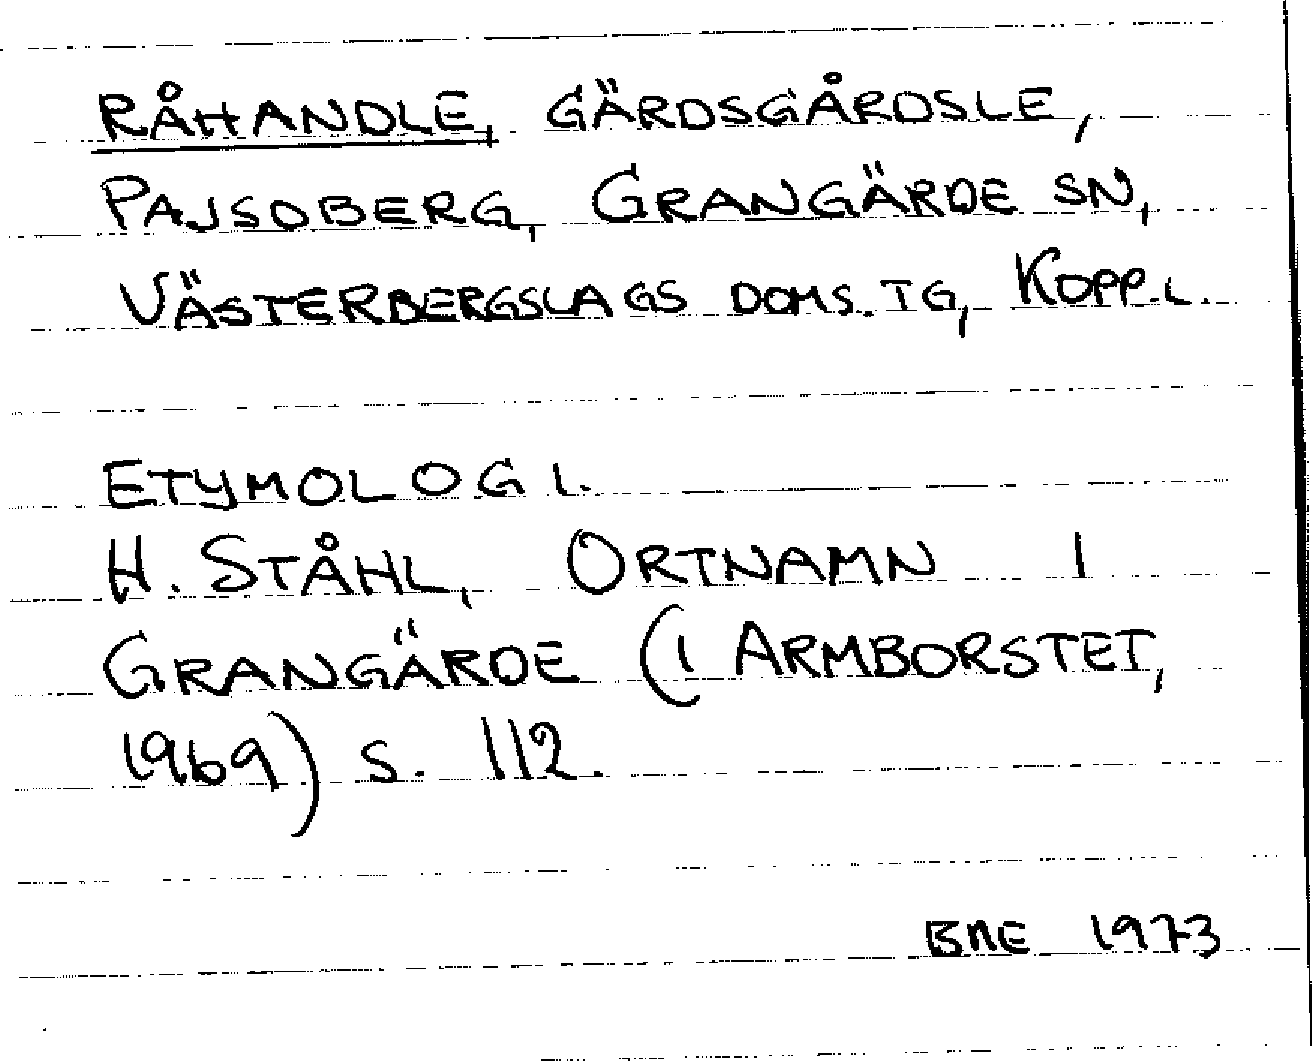 RÅHANDLE, GÄRDSGÅRDSLE,
PAJSOBERG, GRANGÄRDE SN,
VÄSTERBERGSLAGS DOMS. TG, KOPP.L.
ETYMOLOGI.
H. STÅHL, ORTNAMN I
GRANGÄRDE (I ARMBORSTET,
1969) S. 112.
BNE 1973